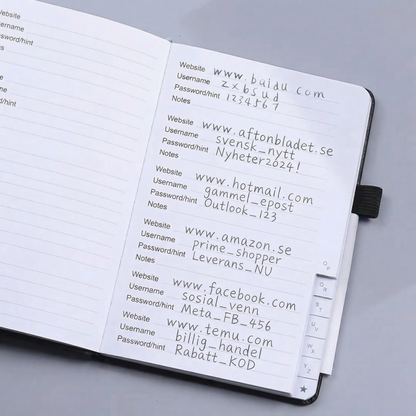 Website
ername
ssword/hint
s
rd/hint
Website www.baidu com
Username zxbsud
Password/hint 1234567
Notes
Website www.aftonbladet.se
Username svensk_nytt
Password/hint Nyheter2024!
Notes
Website www.hotmail.com
Username gammel_epost
Password/hint Outlook_123
Notes
Website www.amazon.se
Username prime_shopper
Password/hint Leverans_NU
Notes
Website www.facebook.com
Username sosial_venn
Password/hint Meta_FB_456
Website www.temu.com
Username billig_handel
Password/hint Rabatt_KOD
O P
Q R
S T
U V
W X
Y Z